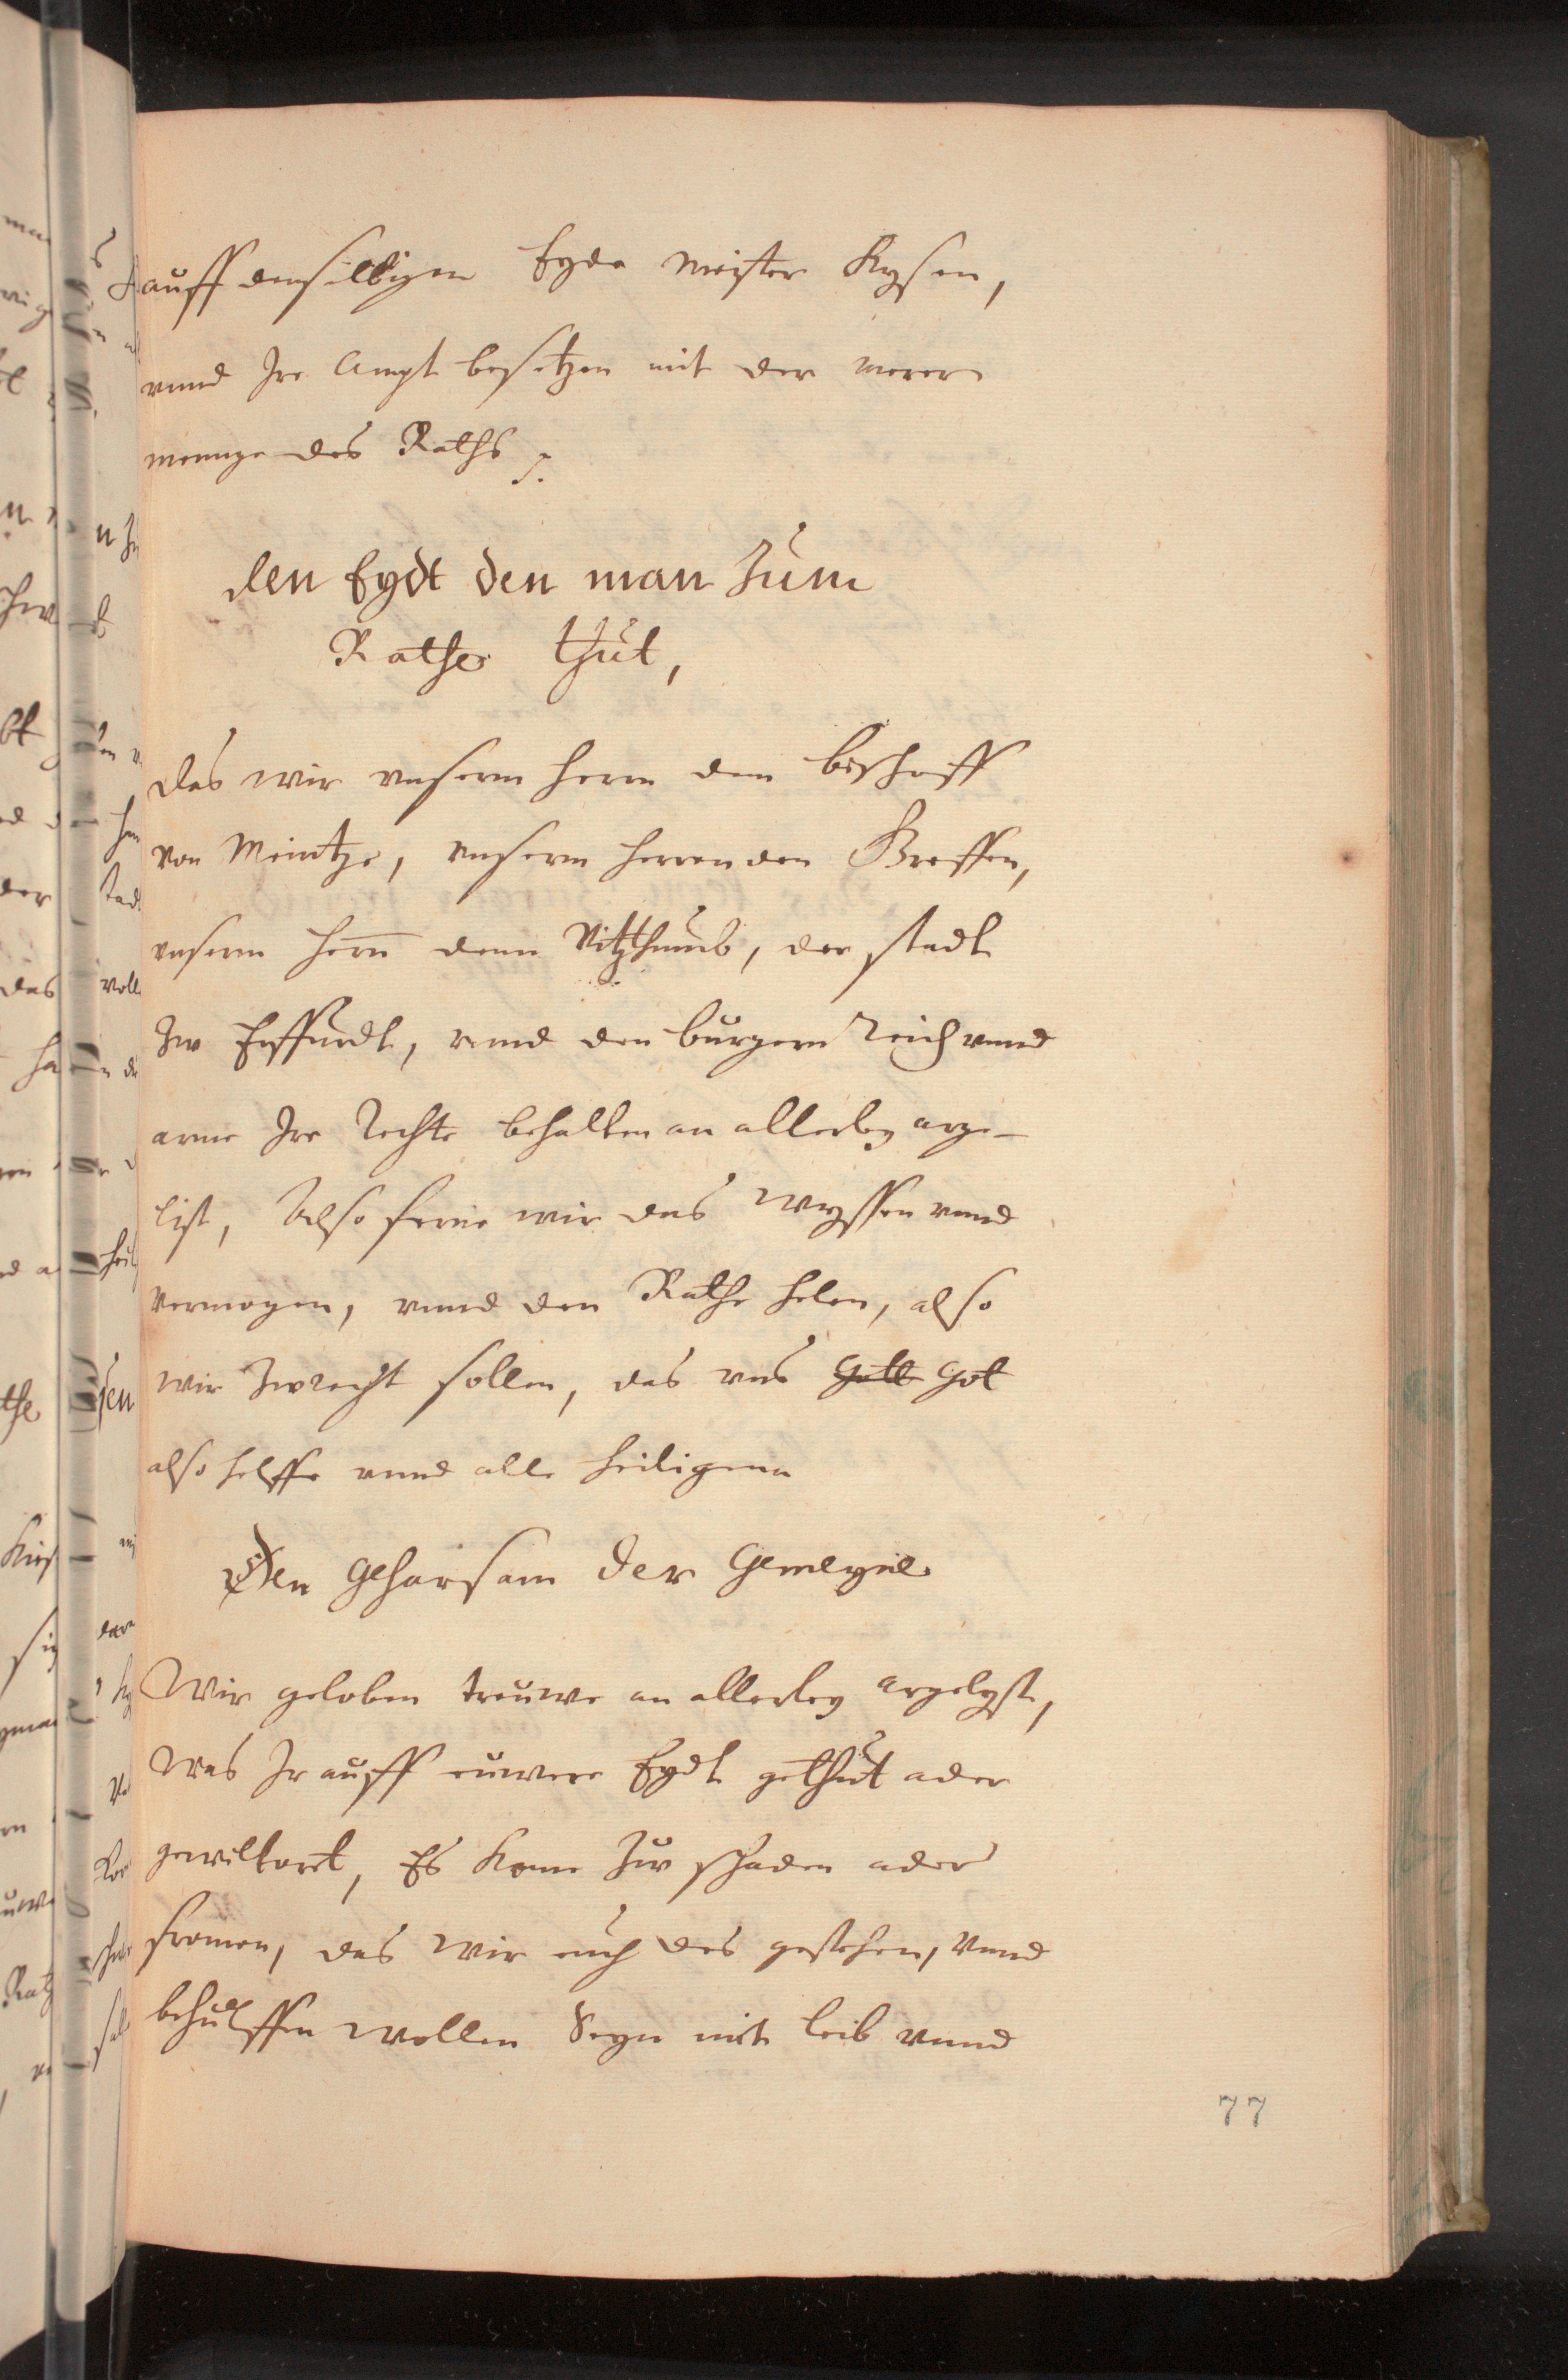 auff denselbigen Eyde meister Kysen,
vnnd Jre Ampt besetzen mit der merer
mennge des Raths
den Eydt den man Zum
Rathe thut,
das wir vnserm herrn dem bischoff
von Meintze, vnserm herren den Greffen,
vnserm hern̄ dem Vitzthumb, der stadt
Zw Erffurdt, vnnd den burgern Reich vnnd
arme Jre Rechte behalten an allerley arge-
list, Also ferne wir das wyssen vnnd
vermogen, vnnd den Rathe helen, also
wir Zw recht sollen, das vns Gott got
also helffe vnnd alle heiligenn
Den Gehorsam der Gemeyne
Wir geloben treuwe an allerley argelyst,
Was Jr auff euwere Eydt gethut ader
gewilkoret, Es kome Zw schaden ader
fromen, das wir euch des gestehen, vnnd
behulffen wollen Seyn mit leib vnnd
77